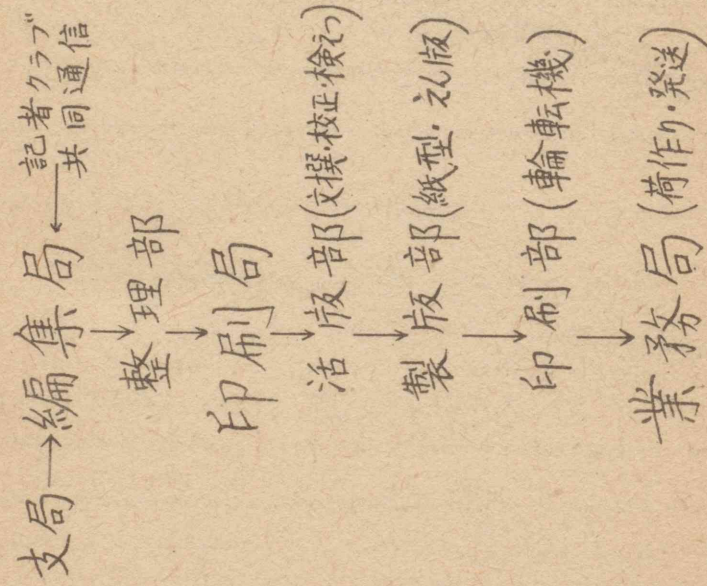 支局→編集局←記者クラブ
共同通信
整理部
印刷局
活版部(文撰・校正・検えつ)
製版部(紙型・えん版)
印刷部(輪転機)
業務局(荷作り・発送)